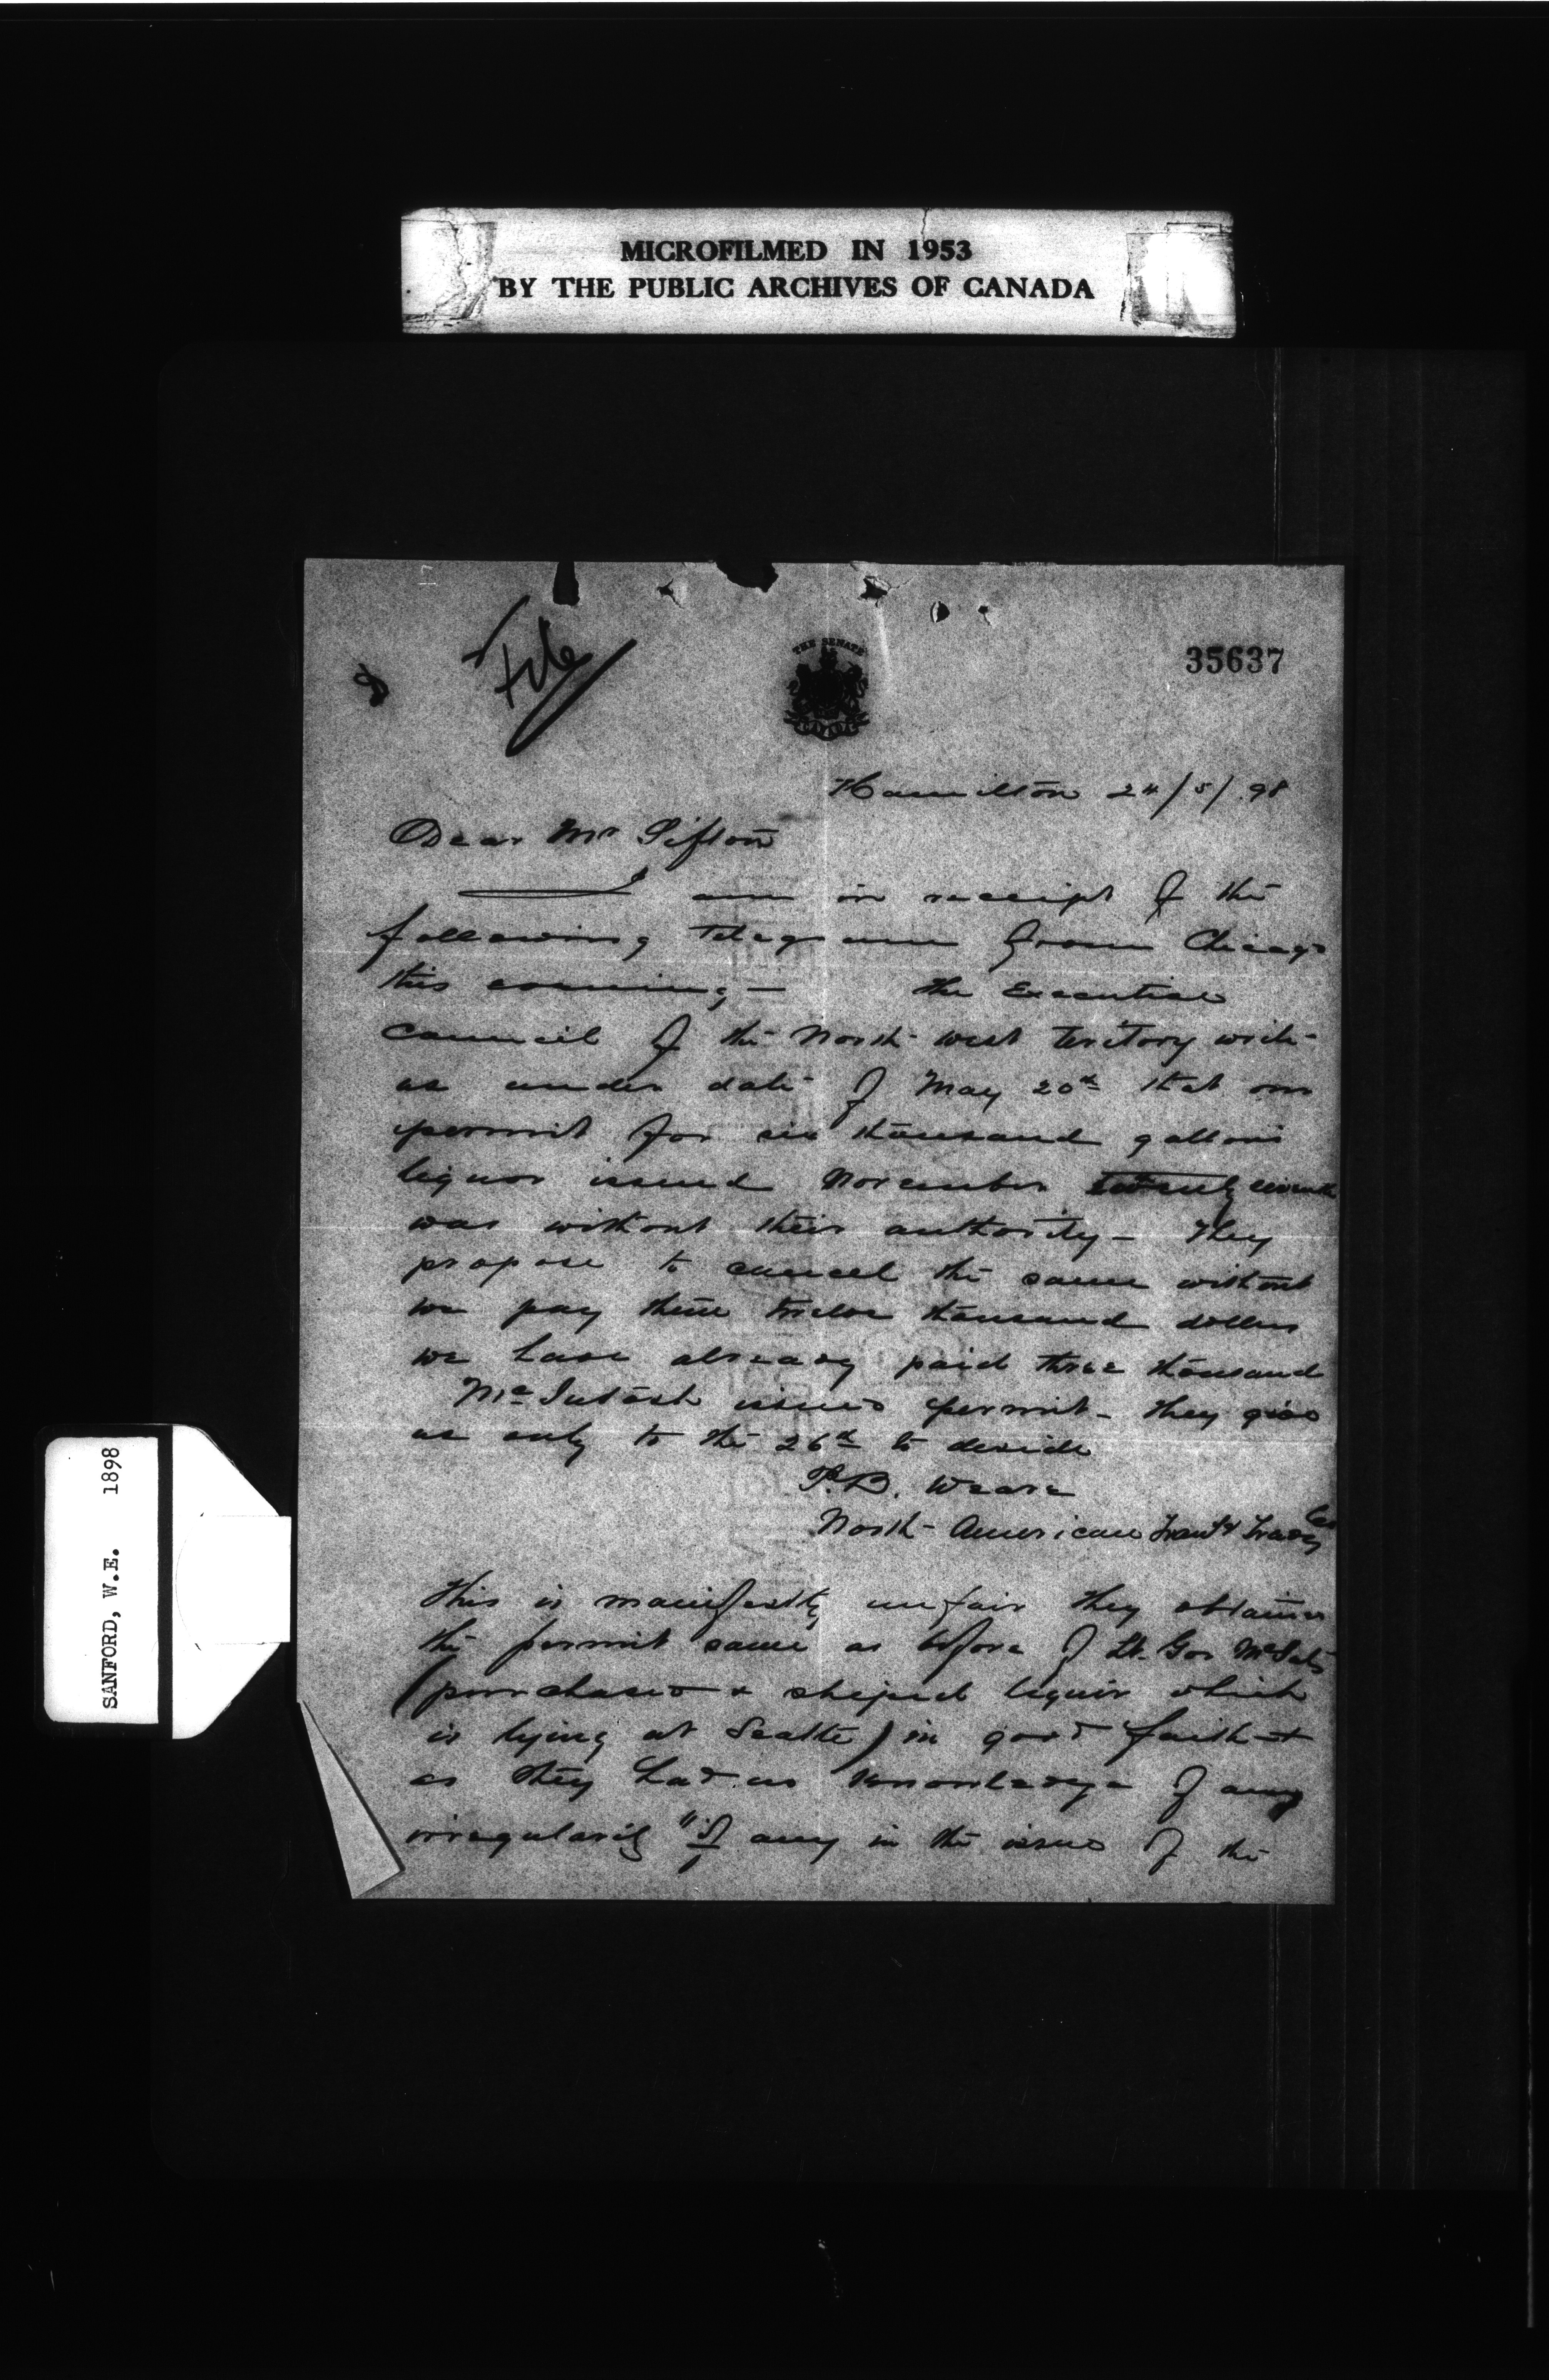 MICROFILMED IN 1953
BY THE PUBLIC ARCHIVES OF CANADA
File
THE SENATE
CANADA
35637
Hamilton 24/5/.98
Dear Mr Sifton
I am in receipt of the
following Telegram from Chicago
this evening— the Executive
Council of the North-west Teritory wich-
us under date of May 20th that our
permit for six thousand gallons
liquor issued November twenty
was without their authority— They
propose to cancel the same without
we pay them twelve thousand dollars
we have already paid three thousand
McIntosh issued permit— they give
us only to the 26th to decide
P.B. Weare
North-American Trant & Trading Co
This is manifestly unfair they obtained
the permit same as before of Lt. Gov McInts
(purchased & shiped liquir which
is lying at Seatte) in good faith—&
as they had no knowledge of any
irregularity "if any in the issue of the
SANFORD, W.E. 1898